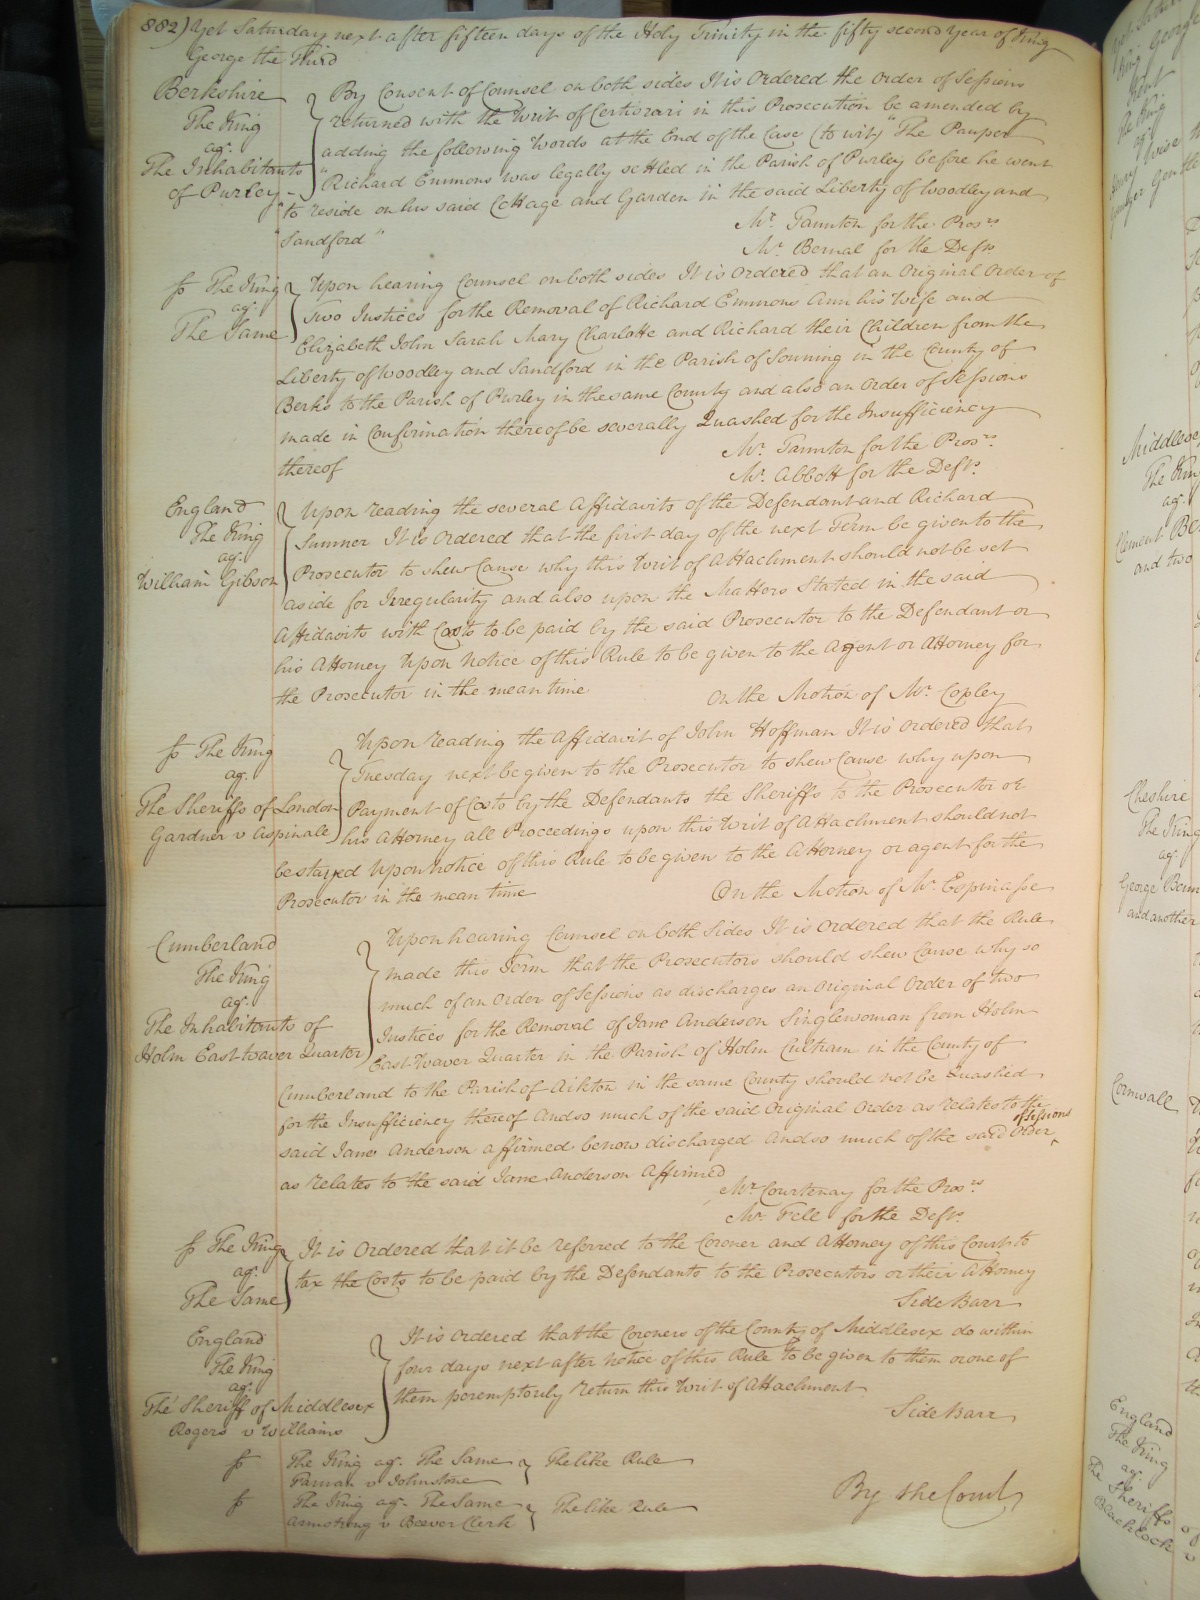 882) Yet Saturday next after fifteen days of the Holy Trinity in the fifty second year of King
George the Third
Berkshire
The King
agt.
The Inhabitants
of Purley
By Consent of Counsel on both sides It is Ordered the Order of Sessions
returned with the Writ of Certiorari in this Prosecution be amended by
adding the following Words at the End of the Case (to wit) "The Pauper
"Richard Emmons was legally settled in the Parish of Purley before he went
"to reside on his said Cottage and Garden in the said Liberty of Woodley and
"Sandford"
Mr. Taunton for the Prosrs
Mr. Bernal for the Defts
The King
agt.
The Same
Upon hearing Counsel on both sides It is Ordered that an Original Order of
Two Justices for the Removal of Richard Emmons Ann his Wife and
Elizabeth John Sarah Mary Charlotte and Richard their Children from the
Liberty of Woodley and Sandford in the Parish of Sonning in the County of
Berks to the Parish of Purley in the same County and also an Order of Sessions
made in Confirmation thereof be severally Quashed for the Insufficiency
thereof
Mr. Taunton for the Prosrs.
Mr. Abbott for the Defts.
England
The King
agt.
William Gibson
Upon reading the several Affidavits of the Defendant and Richard
Sumner It is Ordered that the first day of the next Term be given to the
Prosecutor to shew Cause why this Writ of Attachment should not be set
aside for Irregularity and also upon the Matters Stated in the said
Affidavits with Costs to be paid by the said Prosecutor to the Defendant or
his Attorney Upon Notice of this Rule to be given to the Agent or Attorney for
the Prosecutor in the mean time
On the Motion of Mr. Copley
The King
agt.
The Sheriffs of London
Gardner v Aspinale
Upon reading the Affidavit of John Hoffman It is Ordered that
Tuesday next be given to the Prosecutor to shew Cause why upon
Payment of Costs by the Defendants the Sheriffs to the Prosecutor or
his Attorney all Proceedings upon this Writ of Attachment should not
be stayed Upon Notice of this Rule to be given to the Attorney or agent for the
Prosecutor in the mean time
On the Motion of Mr. Espinasse
Cumberland
The King
agt.
The Inhabitants of
Holm East Waver Quarter
Upon hearing Counsel on both Sides It is Ordered that the Rule
made this Term that the Prosecutors should shew Cause why so
much of an Order of Sessions as discharges an Original Order of two
Justices for the Removal of Jane Anderson Singlewoman from Holm
East Waver Quarter in the Parish of Holm Cultram in the County of
Cumberland to the Parish of Aikton in the same County should not be Quashed
for the Insufficiency thereof And so much of the said Original Order as relates to the
said Jane Anderson affirmed be now discharged And so much of the said Order of Sessions
as relates to the said Jane Anderson Affirmed
Mr. Courtenay for the Prosrs.
Mr. Fell for the Defts.
The King
agt.
The Same
It is Ordered that it be referred to the Coroner and Attorney of this Court to
tax the Costs to be paid by the Defendants to the Prosecutors or their Attorney
Side Barr
England
The King
agt.
The Sheriff of Middlesex
Rogers v Williams
It is Ordered that the Coroners of the County of Middlesex do within
four days next after Notice of this Rule to be given to them or one of
them peremptorily return this Writ of Attachment
Side Barr
The King agt. The Same
Farnan v Johnstone
The like Rule
The King agt. The Same
Armstrong v Beever Clerk
The like Rule
By the Court
Middlesex
The King
agt.
Clement
and two
Cheshire
The King
agt.
George
and another
Cornwall
England
The King
agt.
The Sheriffs of
Blacklock v